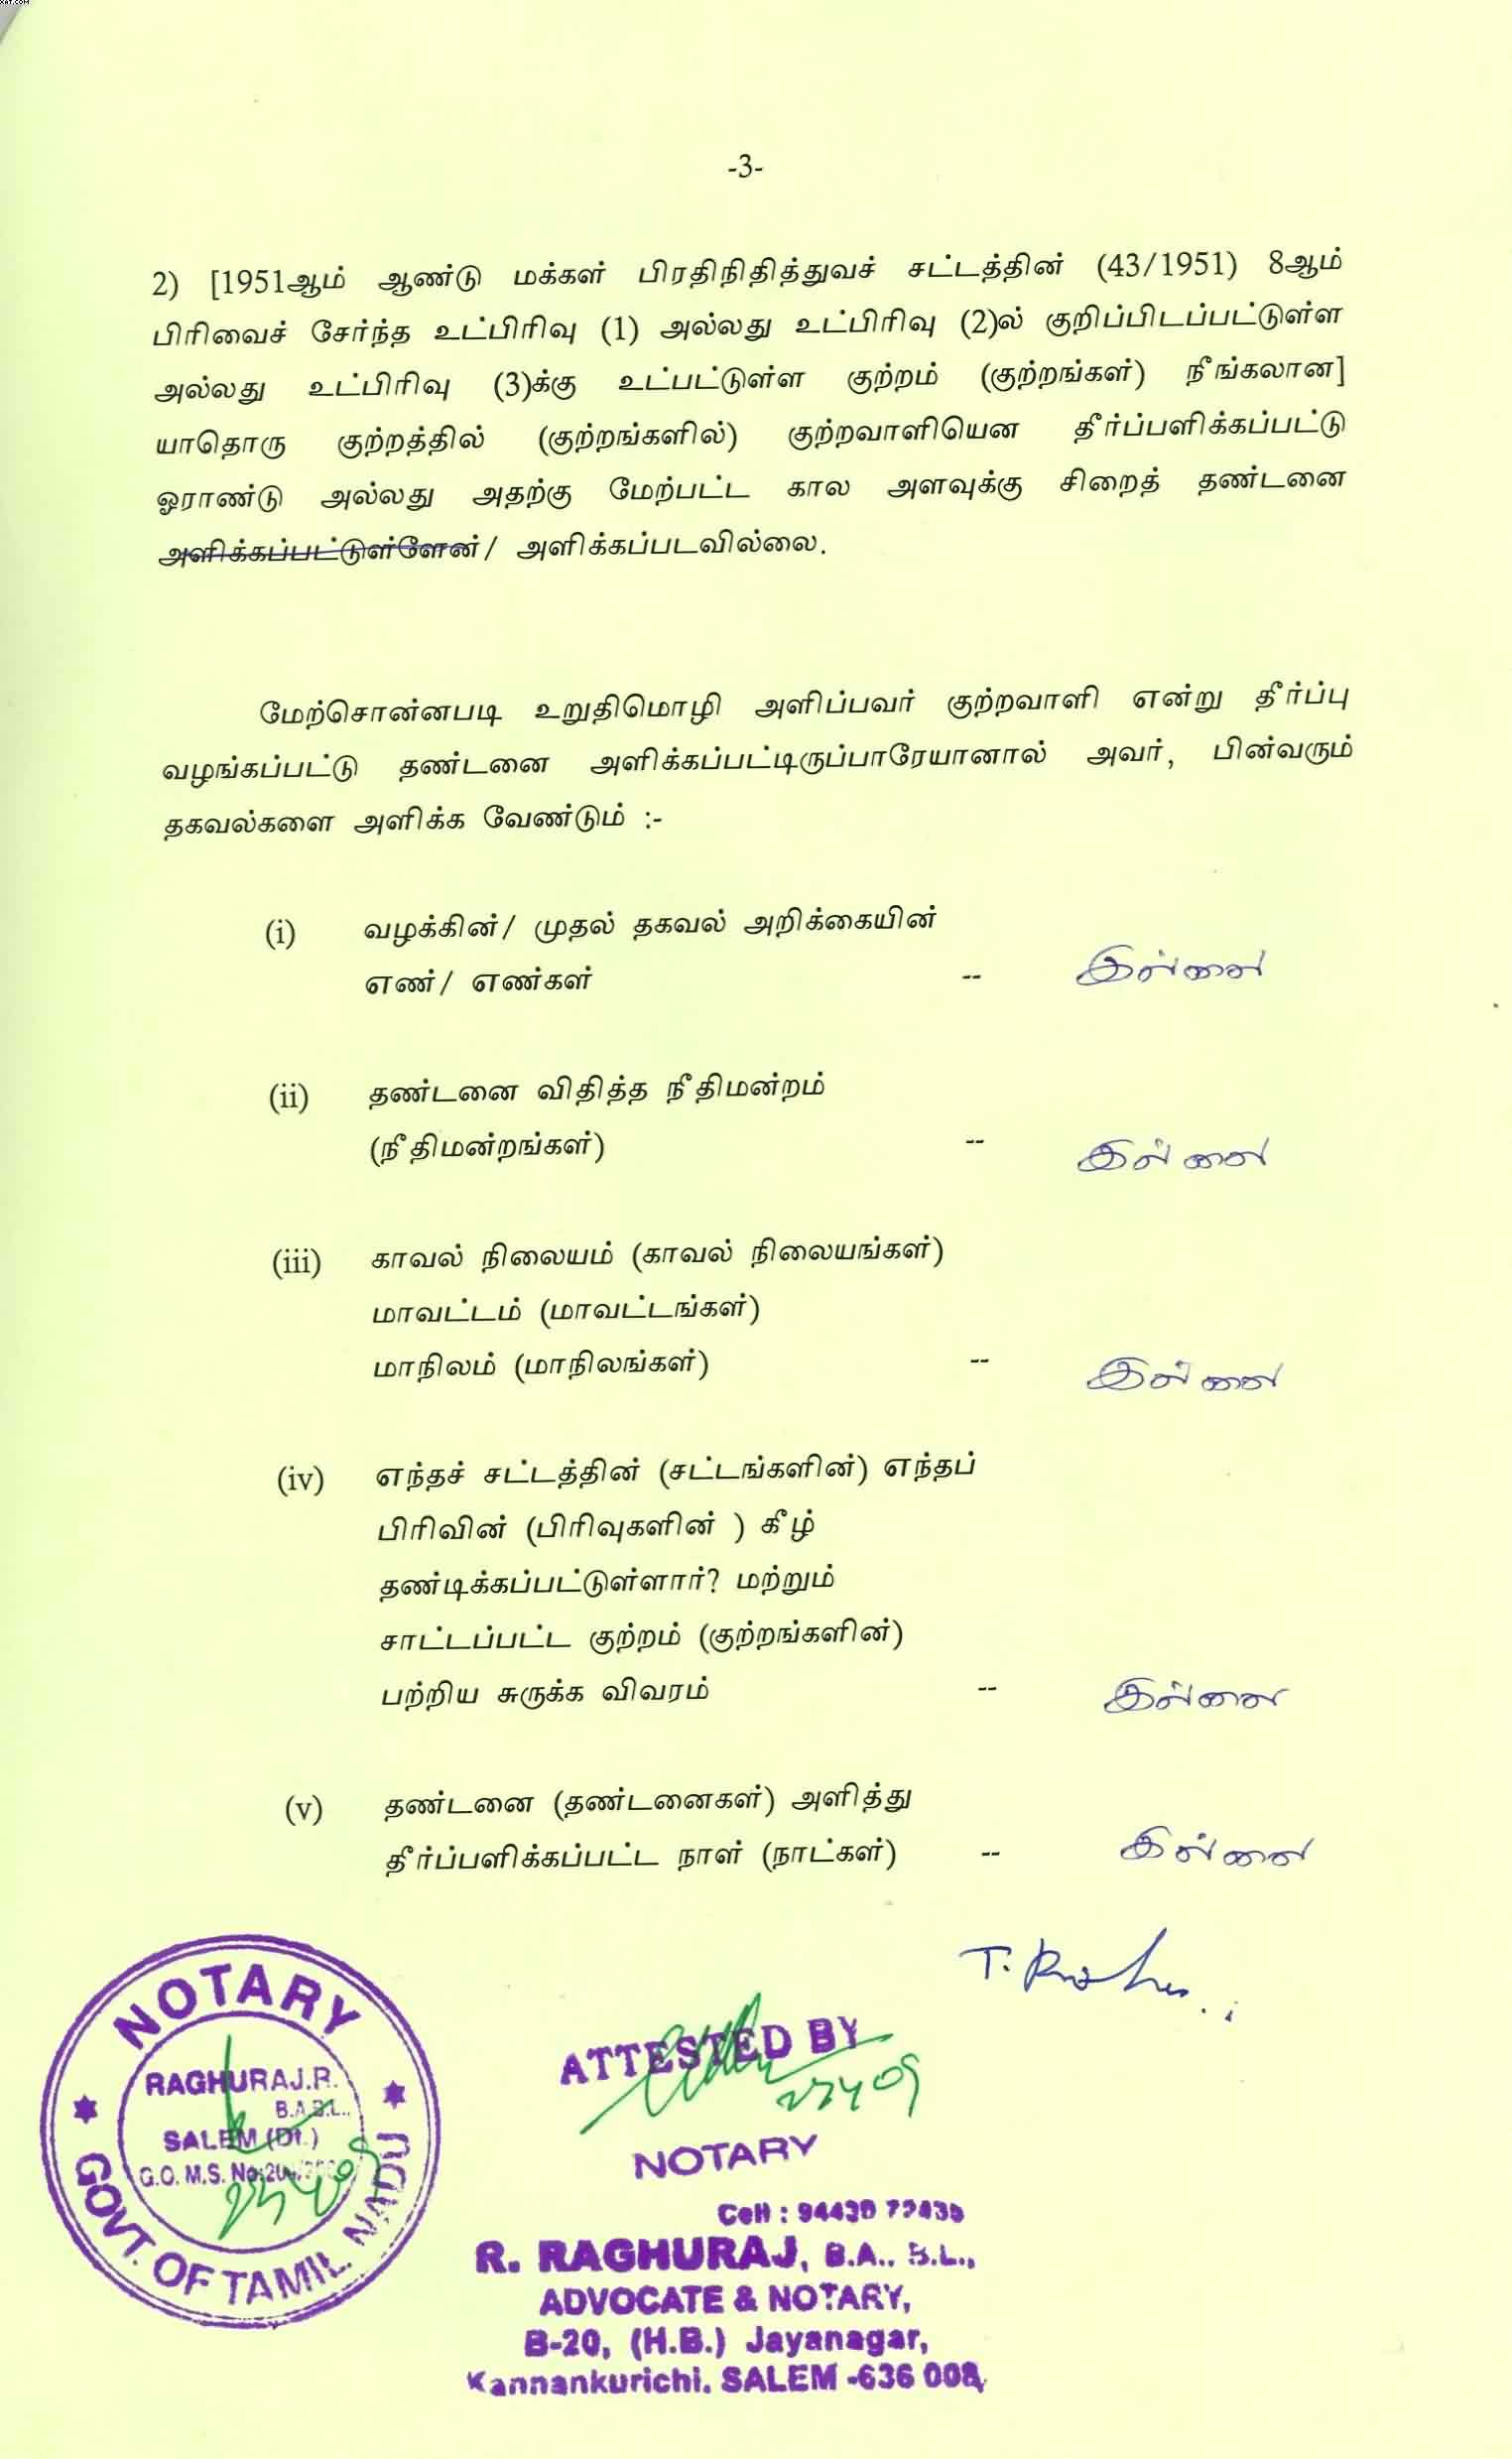 -3-
2) [1951ஆம் ஆண்டு மக்கள் பிரதிநிதித்துவச் சட்டத்தின் (43/1951) 8ஆம்
பிரிவைச் சேர்ந்த உட்பிரிவு (1) அல்லது உட்பிரிவு (2)ல் குறிப்பிடப்பட்டுள்ள
அல்லது உட்பிரிவு (3)க்கு உட்பட்டுள்ள குற்றம் (குற்றங்கள்) நீங்கலான]
யாதொரு குற்றத்தில் (குற்றங்களில்) குற்றவாளியென தீர்ப்பளிக்கப்பட்டு
ஓராண்டு அல்லது அதற்கு மேற்பட்ட கால அளவுக்கு சிறைத் தண்டனை
அளிக்கப்பட்டுள்ளேன்/ அளிக்கப்படவில்லை.
மேற்சொன்னபடி உறுதிமொழி அளிப்பவர் குற்றவாளி என்று தீர்ப்பு
வழங்கப்பட்டு தண்டனை அளிக்கப்பட்டிருப்பாரேயானால் அவர், பின்வரும்
தகவல்களை அளிக்க வேண்டும் :-
(i) வழக்கின்/ முதல் தகவல் அறிக்கையின்
எண்/ எண்கள் -- இல்லை
(ii) தண்டனை விதித்த நீதிமன்றம்
(நீதிமன்றங்கள்) -- இல்லை
(iii) காவல் நிலையம் (காவல் நிலையங்கள்)
மாவட்டம் (மாவட்டங்கள்)
மாநிலம் (மாநிலங்கள்) -- இல்லை
(iv) எந்தச் சட்டத்தின் (சட்டங்களின்) எந்தப்
பிரிவின் (பிரிவுகளின் ) கீழ்
தண்டிக்கப்பட்டுள்ளார்? மற்றும்
சாட்டப்பட்ட குற்றம் (குற்றங்களின்)
பற்றிய சுருக்க விவரம் -- இல்லை
(v) தண்டனை (தண்டனைகள்) அளித்து
தீர்ப்பளிக்கப்பட்ட நாள் (நாட்கள்) -- இல்லை
T.
NOTARY
RAGHURAJ.R.
B.A.B.L.,
SALEM (Dt.)
G.O. M.S. No:
GOVT. OF TAMIL NADU
ATTESTED BY
NOTARY
Cell :
R. RAGHURAJ, B.A., B.L.,
ADVOCATE & NOTARY,
B-20, (H.B.) Jayanagar,
Kannankurichi. SALEM -636 008